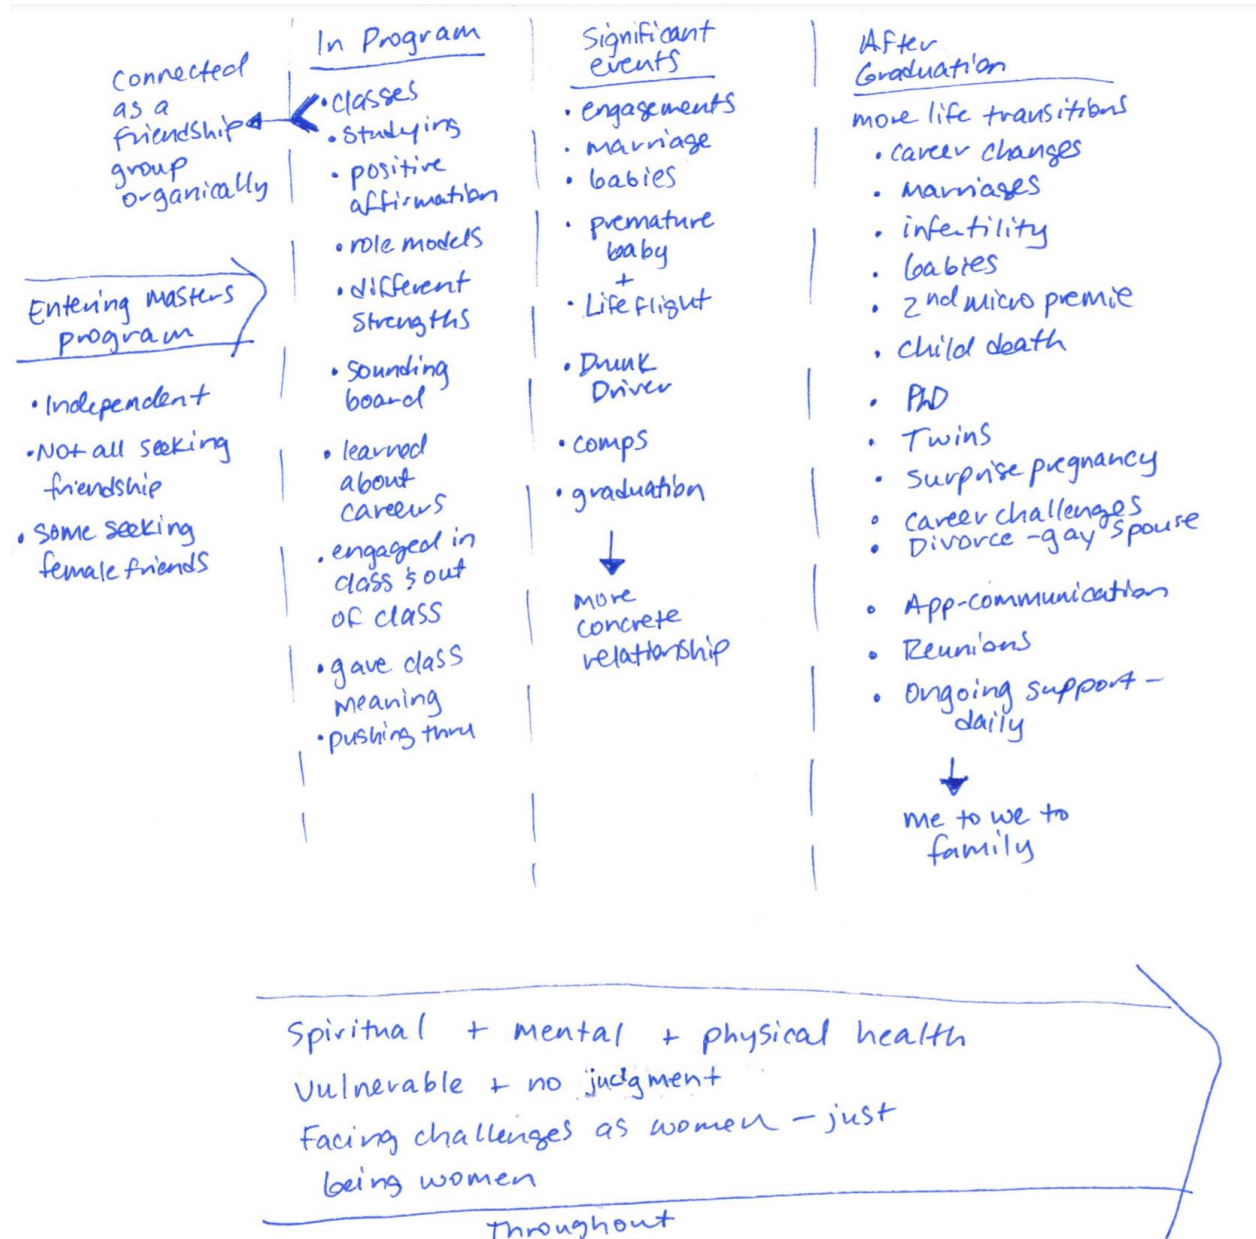 Connected
as a
friendship
group
organically
Entering masters
program
• Independent
• Not all seeking
friendship
• Some seeking
female friends
In Program
• classes
• Studying
• positive
affirmation
• role models
• different
strengths
• sounding
board
• learned
about
careers
• engaged in
class & out
of class
• gave class
meaning
• pushing thru
Significant
events
• engagements
• marriage
• babies
• premature
baby
+
• Life flight
• Drunk
Driver
• comps
• graduation
more
concrete
relationship
After
Graduation
more life transitions
• career changes
• marriages
• infertility
• babies
• 2nd micro premie
• child death
• PhD
• Twins
• surprise pregnancy
• career challenges
• Divorce - gay spouse
• App-communication
• Reunions
• Ongoing support -
daily
me to we to
family
Spiritual + mental + physical health
Vulnerable + no judgment
Facing challenges as women - just
being women
Throughout